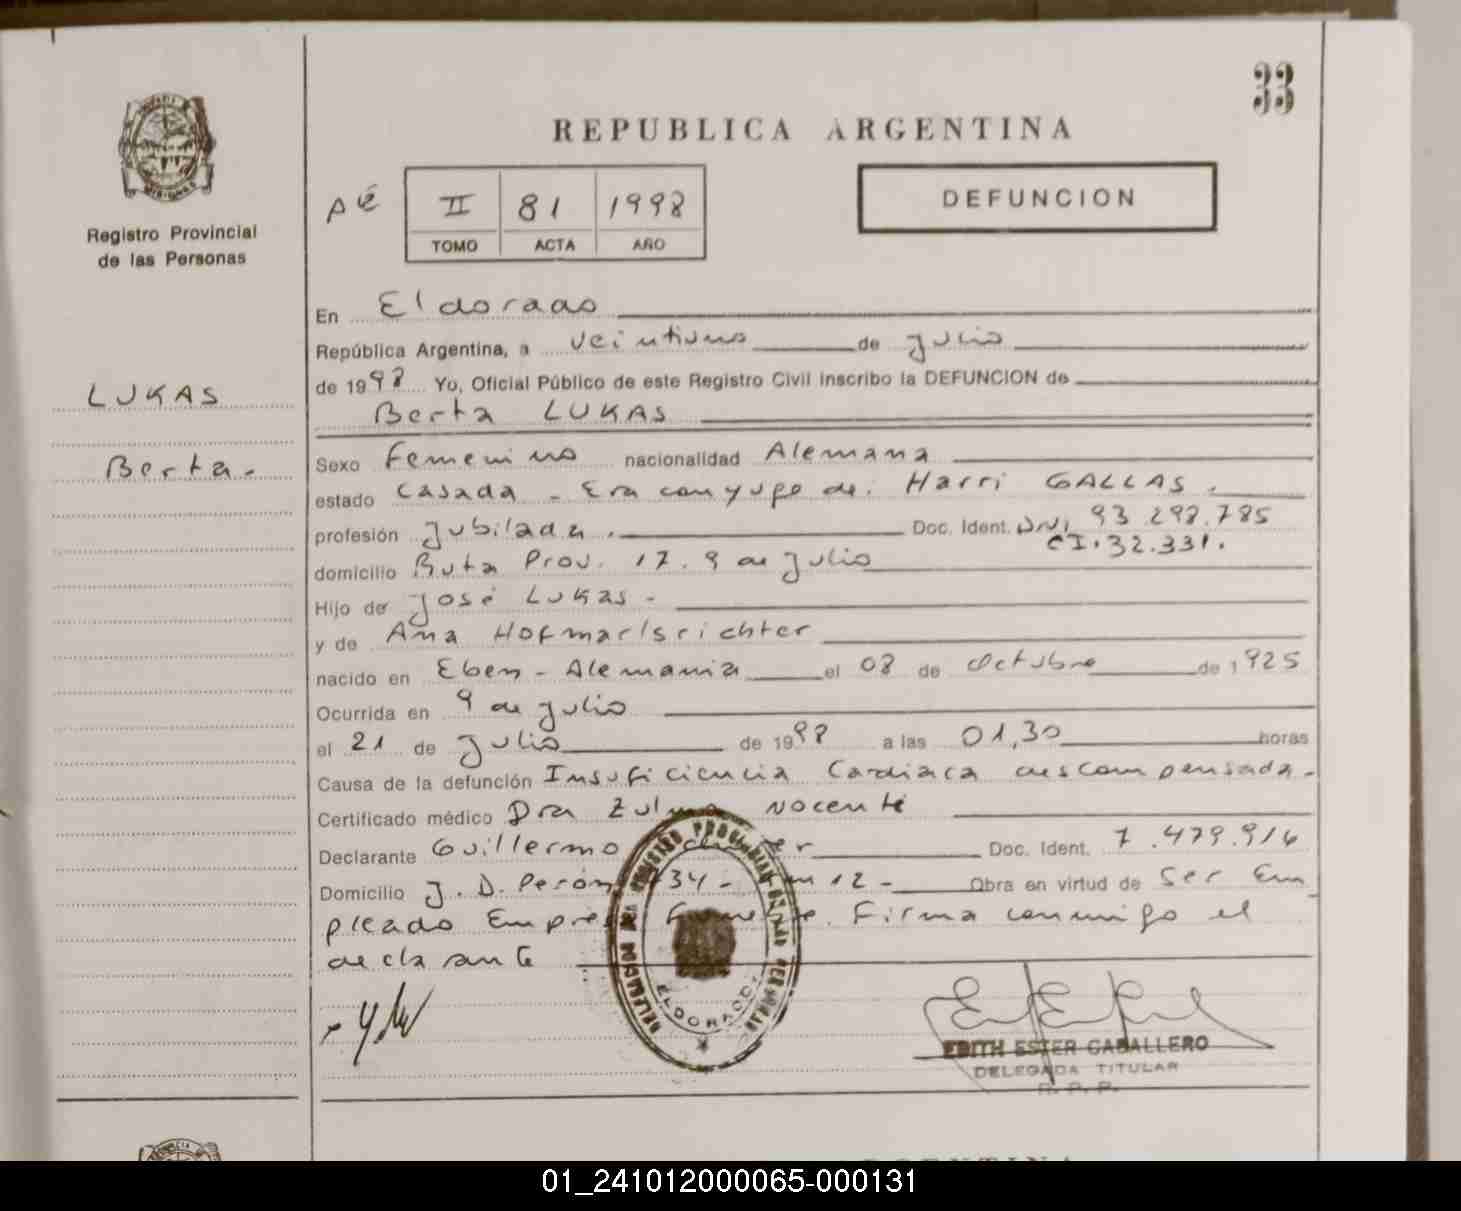 33
REPUBLICA ARGENTINA
Registro Provincial
de las Personas
II 81 1998
TOMO ACTA AÑO
DEFUNCION
LUKAS
Berta.-
En Eldorado
República Argentina, a veintiuno de Julio
de 1998 Yo, Oficial Público de este Registro Civil inscribo la DEFUNCION de
Berta LUKAS
Sexo Femenino nacionalidad Alemana
estado Casada - Era conyuge de: Harri GALLAS.
profesión Jubilada. Doc. Ident. DNI 93.298.785
CI.32.331.
domicilio Ruta Prov. 17. 9 de Julio
Hijo de José LUKAS -
y de Ana Hofmarlsrichter
nacido en Eben - Alemania el 08 de Octubre de 1925
Ocurrida en 9 de Julio
el 21 de Julio de 1998 a las 01,30 horas
Causa de la defunción Insuficiencia Cardiaca descompensada.-
Certificado médico Dra Zulma Nocenti
Declarante Guillermo Doc. Ident. 7.479.916
Domicilio J. D. Perón 12 - Obra en virtud de Ser Em
pleado Empresa Firma conmigo el
declarante
ELDORADO
EDITH ESTER CABALLERO
DELEGADA TITULAR
R. P. P.
01_241012000065-000131